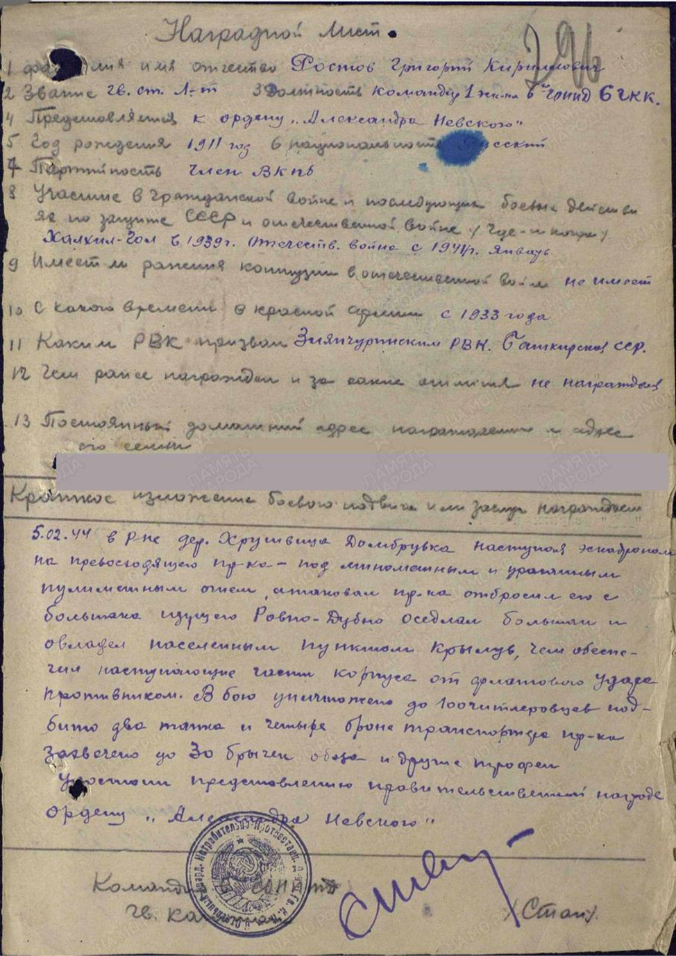 Наградной лист.
296
1 фамилия имя отчество Ростов Григорий Кириллович
2 Звание гв. ст. л-т 3 Должность командир 1 6 6 гкк.
4 Представляется к ордену „Александра Невского"
5 Год рождения 1911 год 6 национальность Русский
7 Партийность член ВКПб
8 Участие в гражданской войне и последующих боевых действи
ях по защите СССР и отечественной войне (где и когда)
Халхин-Гол в 1939г. Отечеств. война с 1941г. январь
9 Имеет ли ранения контузии в отечественной войне не имеет
10 С какого времени в красной армии с 1933 года
11 Каким РВК призван Зиянчуринским РВК. Башкирской ССР.
12 Чем ранее награжден и за какие отличия не награждался
13 Постоянный домашний адрес и адрес
его семьи
Краткое изложение боевого подвига или заслуг
5.02.44 в р-не дер. Хрушвица Домбрувка наступая эскадроном
на превосходящего пр-ка под минометным и ураганным
пулиметным огнем, атаковал пр-ка отбросил его с
большака идущего Ровно-Дубно оседлал большак и
овладел населенным пунктом Крылув, чем обеспе-
чил наступающие части корпуса от флангового удара
противником. В бою уничтожено до 100 гитлеровцев под-
бито два танка и четыре бронетранспортера пр-ка
захвачено до 30 бричек обоза и другие трофеи
представлению правительственной награде
ордену „Александра Невского"
Командир
гв.